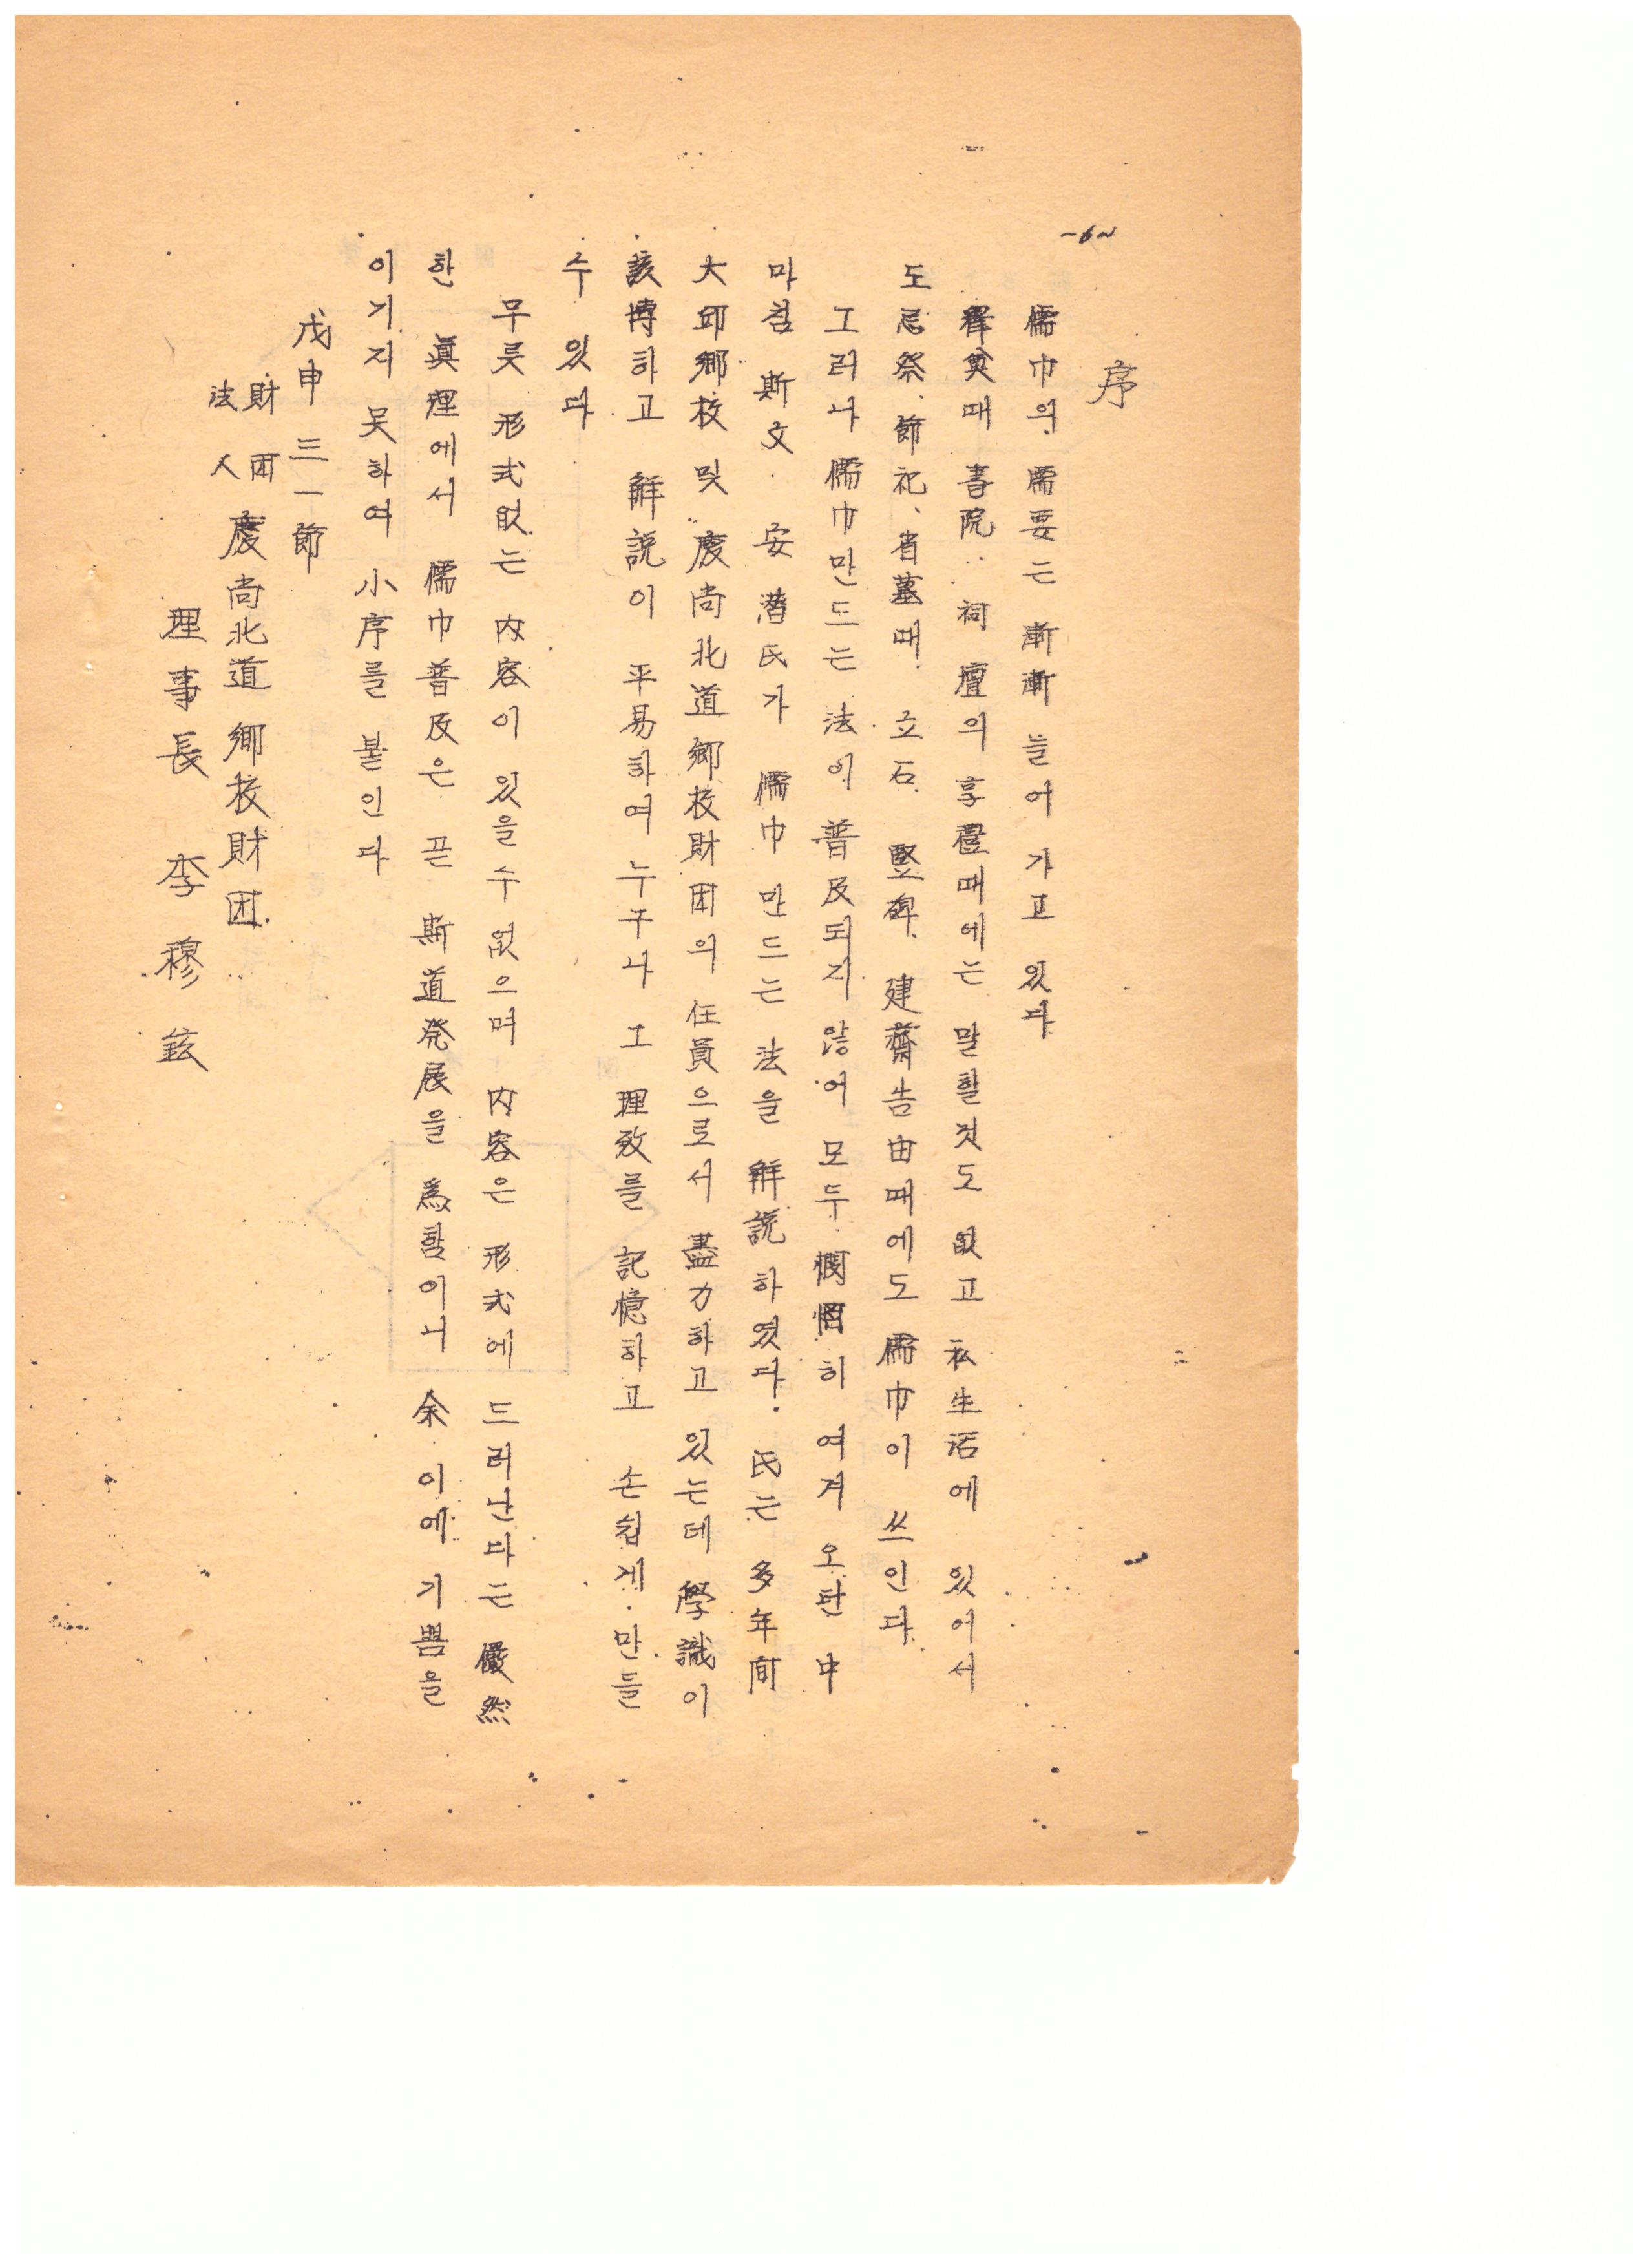 -6-
序
儒巾의 需要는 漸漸 늘어 가고 있다
釋奠때 書院· 祠 壇의 享禮때에는 말할것도 없고 私生活에 있어서
도 忌祭、節祀、省墓때 立石 竪碑 建齋告由때에도 儒巾이 쓰인다
그러나 儒巾만드는 法이 普及되지 않어 모두 憫惘히 여겨 오든 中
마침 斯文 安 潛氏가 儒巾 만드는 法을 解說하였다. 氏는 多年間
大邱鄕校 및 慶尙北道鄕校財団의 任員으로서 盡力하고 있는데 學識이
該博하고 解說이 平易하여 누구나 그 理致를 記憶하고 손쉽게 만들
수 있다
무릇 形式없는 內容이 있을수 없으며 內容은 形式에 드러난다는 儼然
한 眞理에서 儒巾普及은 곧 斯道発展을 爲함이니 余 이에 기쁨을
이기지 못하여 小序를 붙인다
戊申 三一節
財団法人 慶尙北道 鄕校財団
理事長 李 穆 鉉